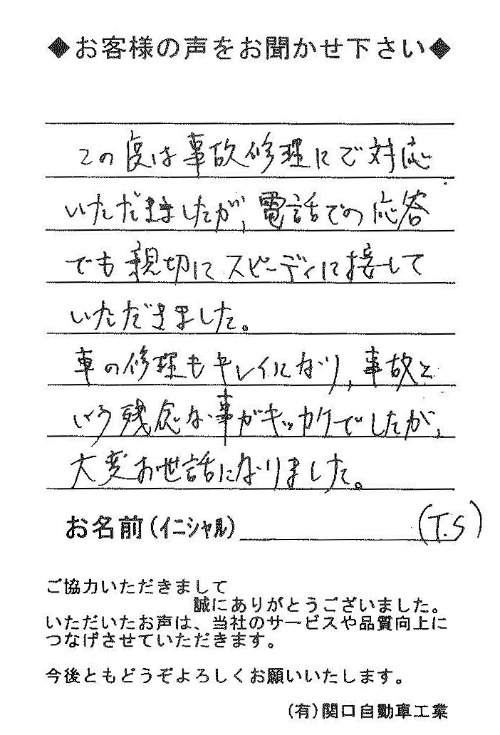 ◆お客様の声をお聞かせ下さい◆
この度は事故修理にご対応
いただきましたが、電話での応答
でも親切にスピーディに接して
いただきました。
車の修理もキレイになり、事故と
いう残念な事がキッカケでしたが、
大変お世話になりました。
お名前(イニシャル) (T.S)
ご協力いただきまして
誠にありがとうございました。
いただいたお声は、当社のサービスや品質向上に
つなげさせていただきます。
今後ともどうぞよろしくお願いいたします。
(有)関口自動車工業